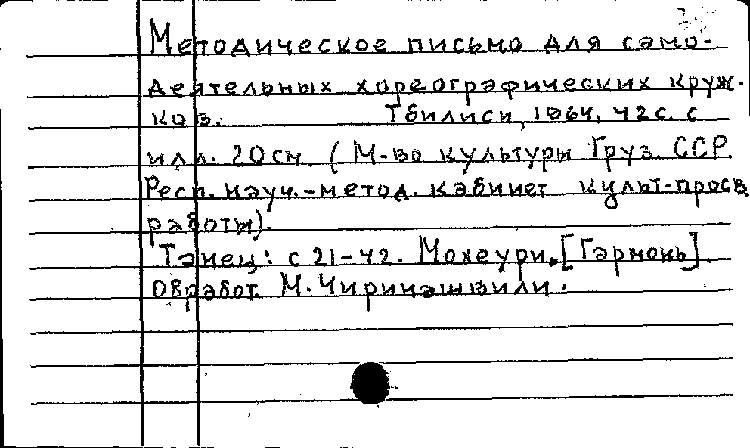 Методическое письмо для само-
деятельных хореографических круж-
ков. Тбилиси, 1964, 42с. с
илл. 20см. (М-во культуры Груз. ССР
Респ. науч.-метод. кабинет культ-просв
работы).
Танец: с 21-42. Мохеури. [Гармонь].
Обработ. М. Чиринашвили.